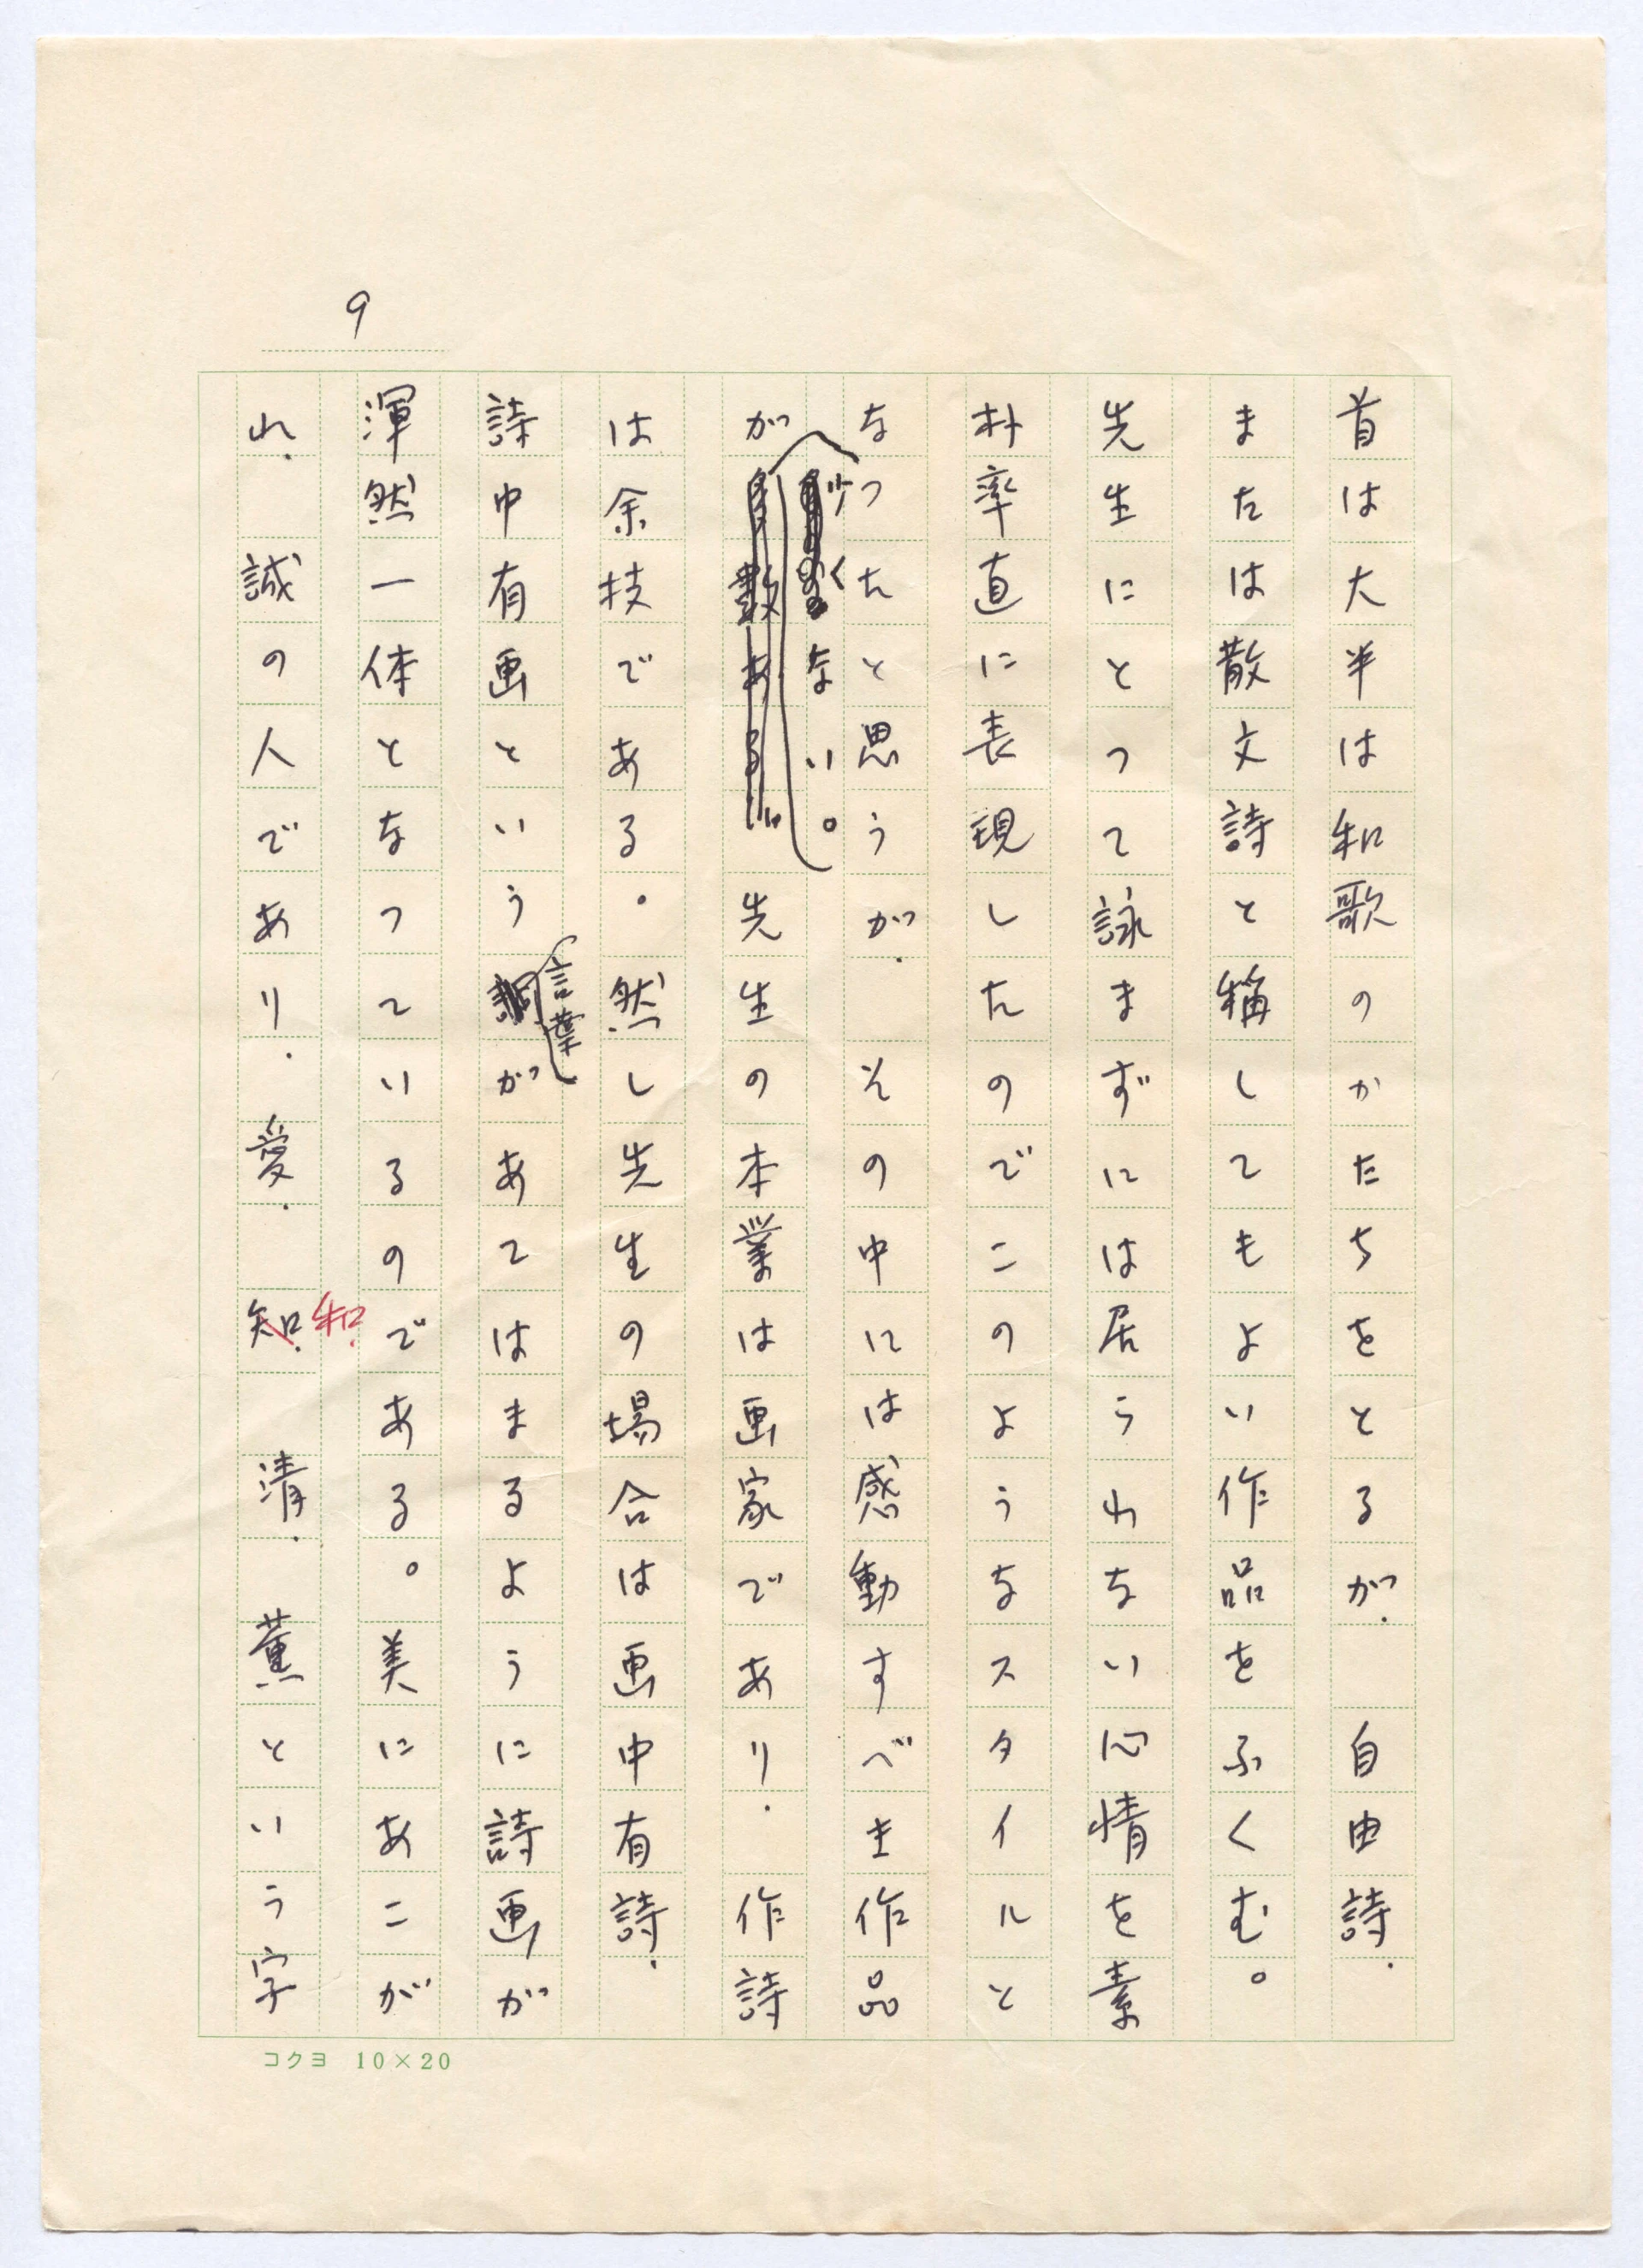 9
首は大半は和歌のかたちをとるが、自由詩、
または散文詩と稱してもよい作品をふくむ。
先生にとって詠まずには居られない心情を素
朴率直に表現したのでこのようなスタイルと
なったと思うが、その中には感動すべき作品
が少くない。先生の本業は画家であり、作詩
は余技である。然し先生の場合は画中有詩、
詩中有画という言葉があてはまるように詩画が
渾然一体となっているのである。美にあこが
れ、誠の人であり、愛、和、清、薫という字
コクヨ 10×20